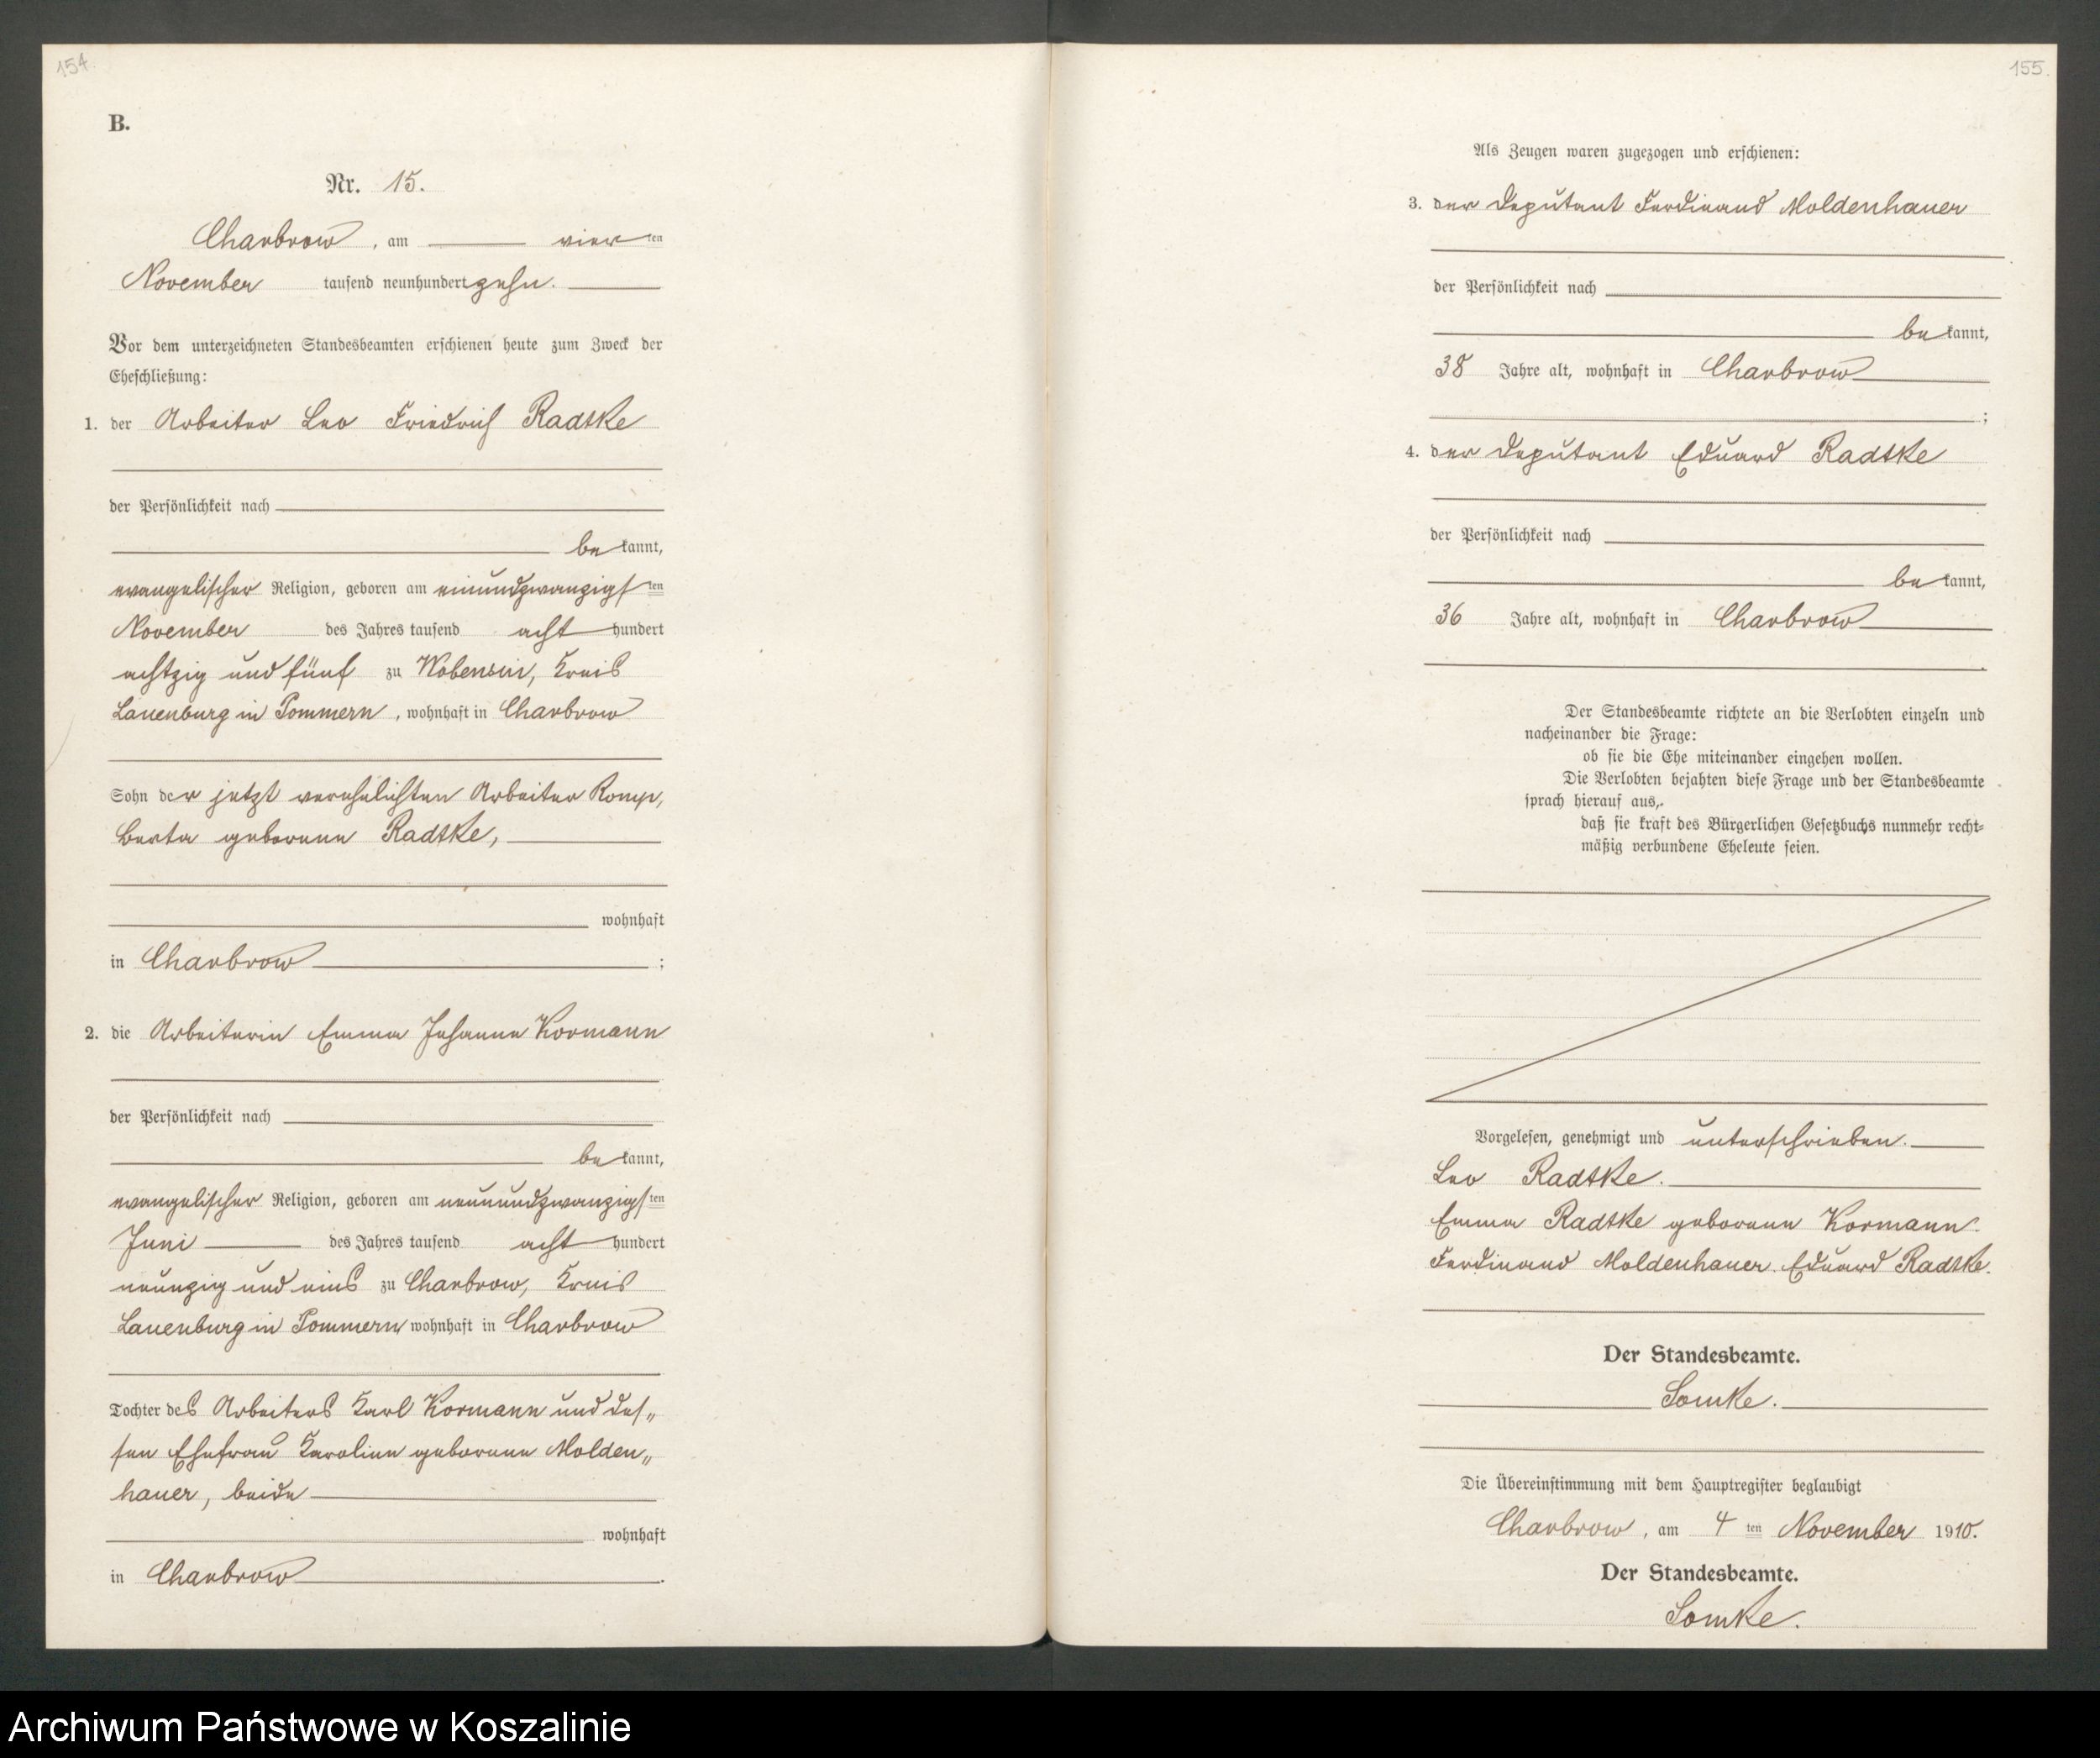 154.
B.
Nr. 15.
Charbrow, am vierten
November tausend neunhundert zehn.
Vor dem unterzeichneten Standesbeamten erschienen heute zum Zweck der
Eheschließung:
1. der Arbeiter Leo Friedrich Radtke
der Persönlichkeit nach
bekannt,
evangelischer Religion, geboren am einundzwanzigsten
November des Jahres tausend achthundert
achtzig und fünf zu Wobensin, Kreis
Lauenburg in Pommern, wohnhaft in Charbrow
Sohn der jetzt verehelichten Arbeiter Romp,
Berta geborene Radtke,
wohnhaft
in Charbrow ;
2. die Arbeiterin Emma Johanne Kormann
der Persönlichkeit nach
bekannt,
evangelischer Religion, geboren am neunundzwanzigsten
Juni des Jahres tausend achthundert
neunzig und eins zu Charbrow, Kreis
Lauenburg in Pommern, wohnhaft in Charbrow
Tochter des Arbeiters Karl Kormann und des„
sen Ehefrau Karoline geborene Molden„
hauer, beide
wohnhaft
in Charbrow.
155.
Als Zeugen waren zugezogen und erschienen:
3. der Deputant Ferdinand Moldenhauer
der Persönlichkeit nach
bekannt,
38 Jahre alt, wohnhaft in Charbrow
;
4. der Deputant Eduard Radtke
der Persönlichkeit nach
bekannt,
36 Jahre alt, wohnhaft in Charbrow
Der Standesbeamte richtete an die Verlobten einzeln und
nacheinander die Frage:
ob sie die Ehe miteinander eingehen wollen.
Die Verlobten bejahten diese Frage und der Standesbeamte
sprach hierauf aus,
daß sie kraft des Bürgerlichen Gesetzbuchs nunmehr recht-
mäßig verbundene Eheleute seien.
Vorgelesen, genehmigt und unterschrieben.
Leo Radtke.
Emma Radtke geborene Kormann.
Ferdinand Moldenhauer. Eduard Radtke.
Der Standesbeamte.
Somke.
Die Übereinstimmung mit dem Hauptregister beglaubigt
Charbrow, am 4ten November 1910.
Der Standesbeamte.
Somke.
Archiwum Państwowe w Koszalinie